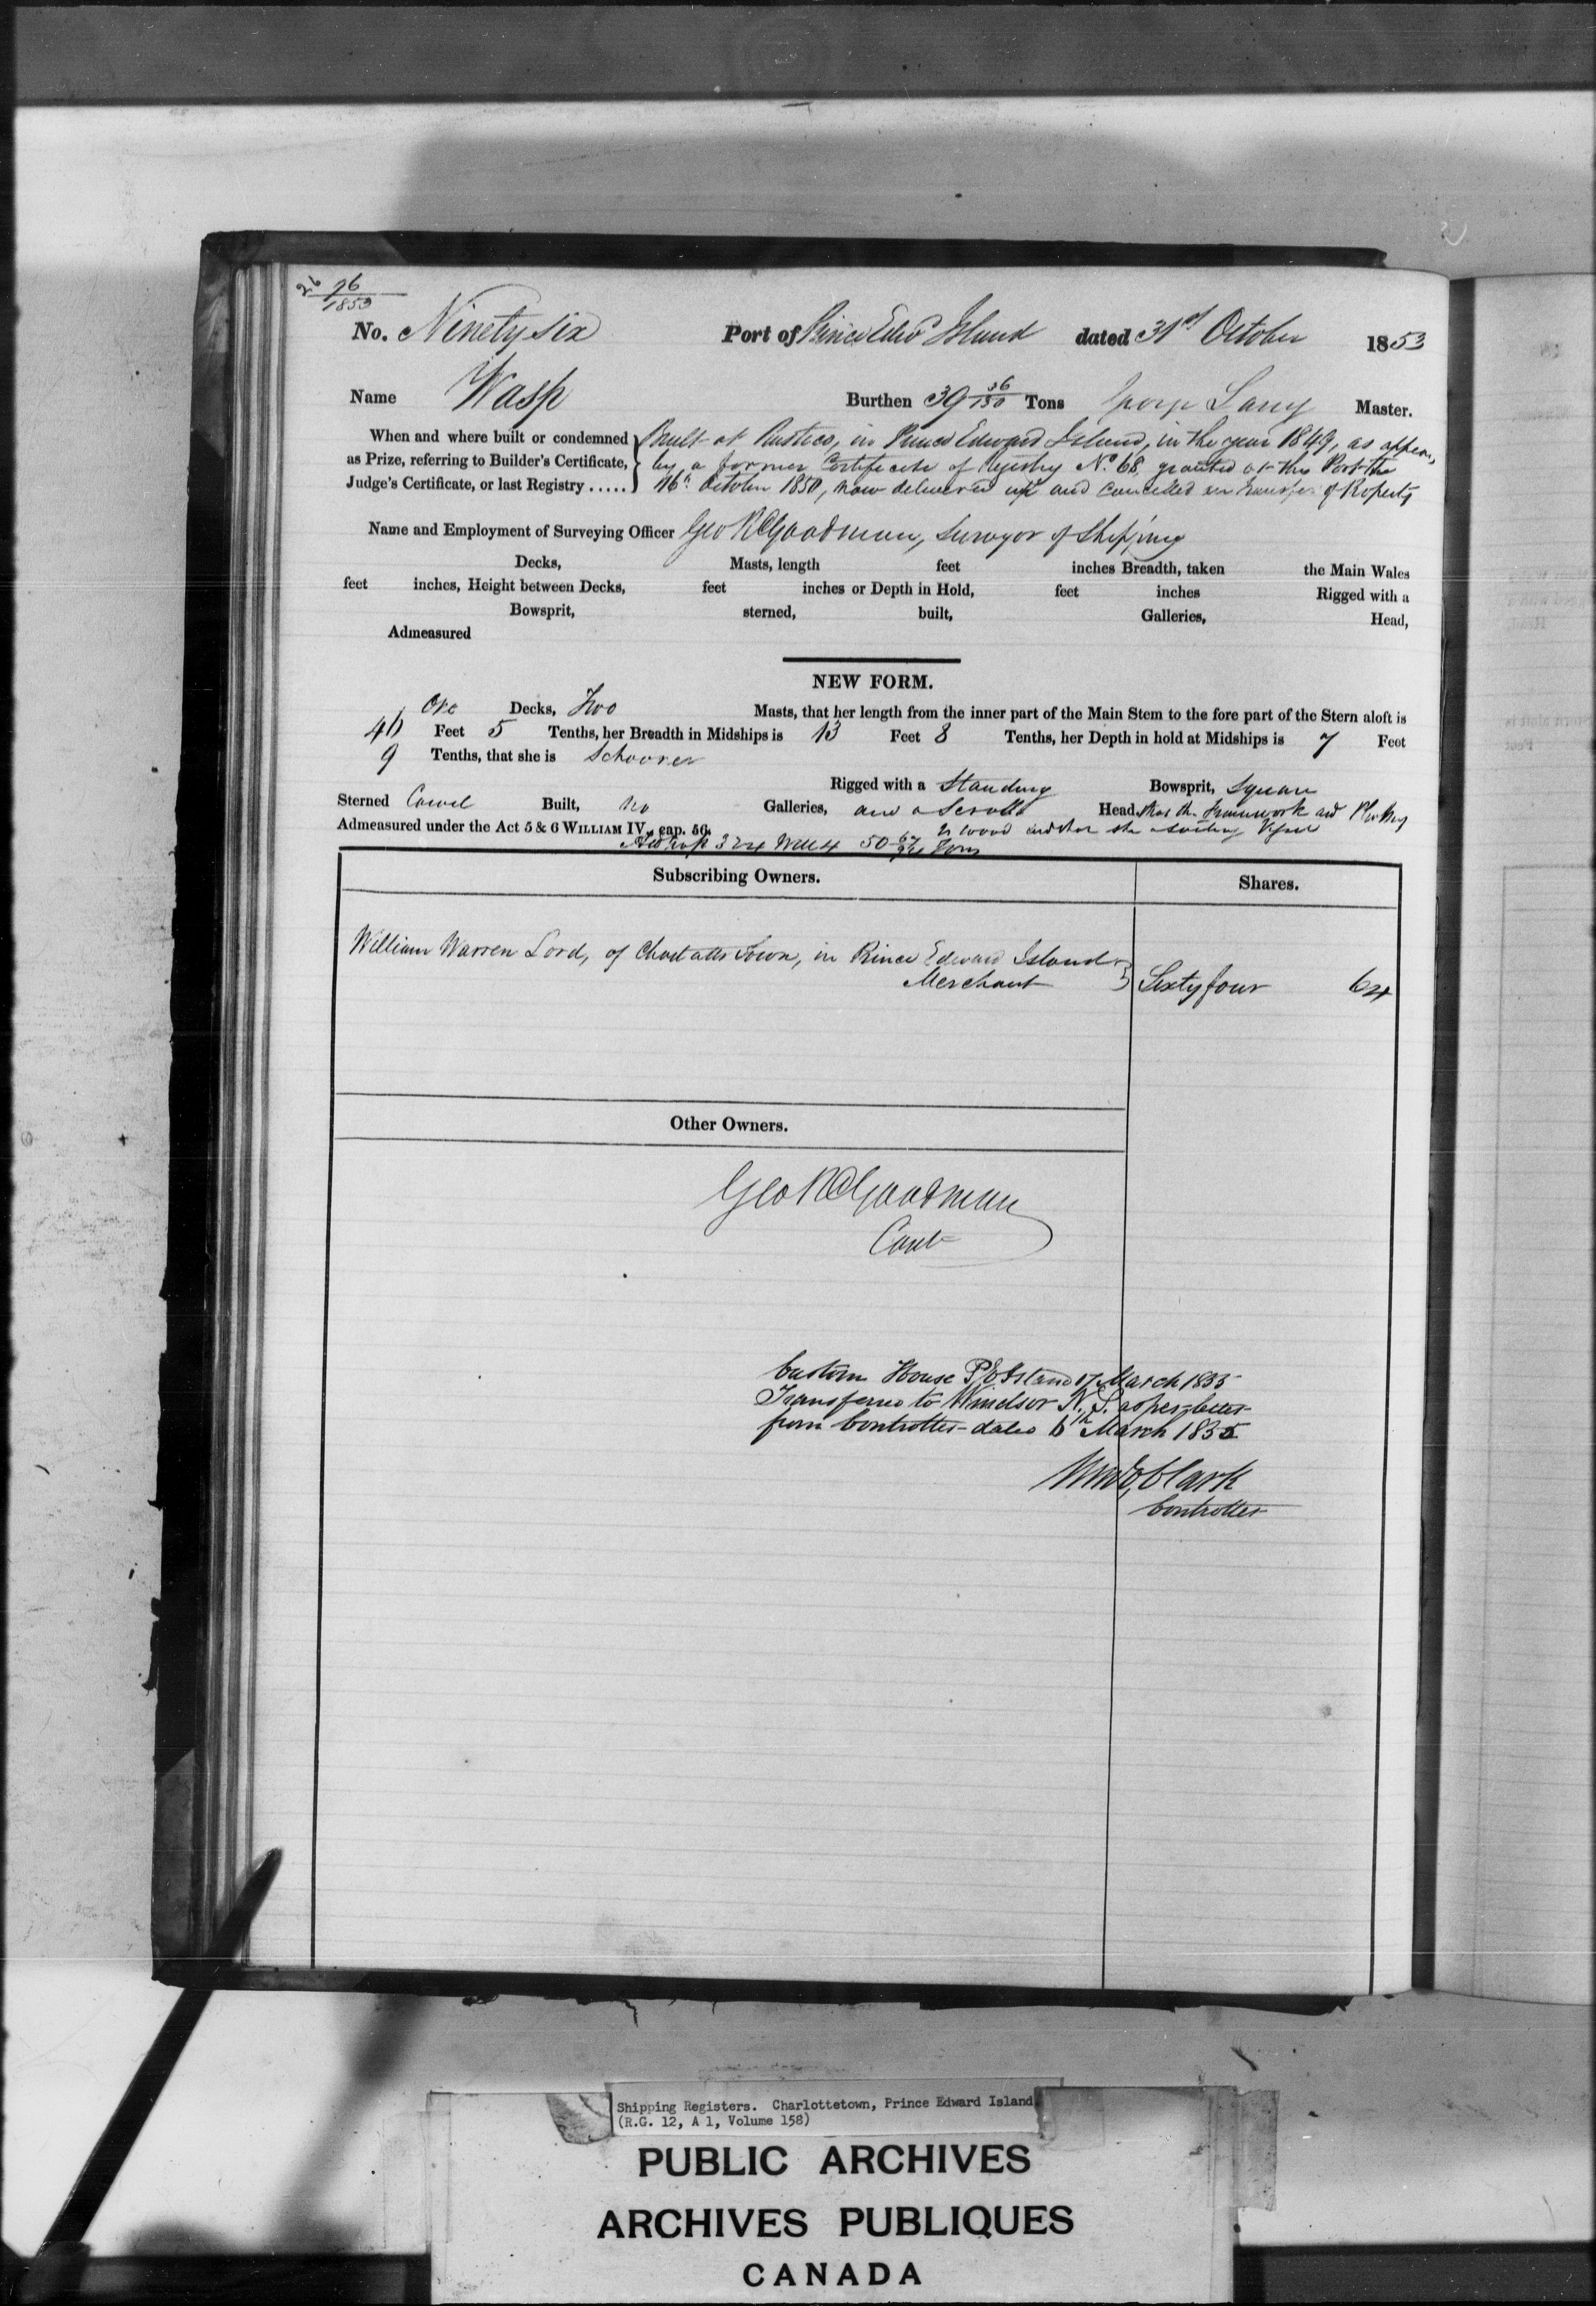 26 96/1853
No. Ninety six Port of Prince Edwd Island dated 31st October 1853
Name Wasp Burthen 39 36/130 Tons George Master.
When and where built or condemned as Prize, referring to Builder's Certificate, Judge's Certificate, or last Registry .....
Built at Rustico, in Prince Edward Island, in the year 1849, as appears
by a former Certificate of Registry No. 68, granted at this Port the
16th October 1850, now delivered up and cancelled on transfer of Property
Name and Employment of Surveying Officer Geo R Goodman, Surveyor of Shipping
Decks, Masts, length feet inches Breadth, taken the Main Wales
feet inches, Height between Decks, feet inches or Depth in Hold, feet inches Rigged with a
Bowsprit, sterned, built, Galleries, Head,
Admeasured
NEW FORM.
One Decks, Two Masts, that her length from the inner part of the Main Stem to the fore part of the Stern aloft is
Feet 5 Tenths, her Breadth in Midships is 13 Feet 8 Tenths, her Depth in hold at Midships is 7 Feet
9 Tenths, that she is Schooner
Rigged with a Standing Bowsprit, Square
Sterned Carvel Built, no Galleries, and a Scroll Head, that the framework and Planking
Admeasured under the Act 5 & 6 WILLIAM IV., cap. 56. is wood and that she is a Sailing Vessel
50 Tons
Subscribing Owners. Shares.
William Warren Lord, of Charlotte Town, in Prince Edward Island
Merchant Sixty four 64
Other Owners.
Geo R Goodman
Cont
Custom House P E Island 17 March 1855
Transferred to Windsor N. S. as per letter
from Controller dated 6th March 1855
Clark
Controller
Shipping Registers. Charlottetown, Prince Edward Island
(R.G. 12, A 1, Volume 158)
PUBLIC ARCHIVES
ARCHIVES PUBLIQUES
CANADA